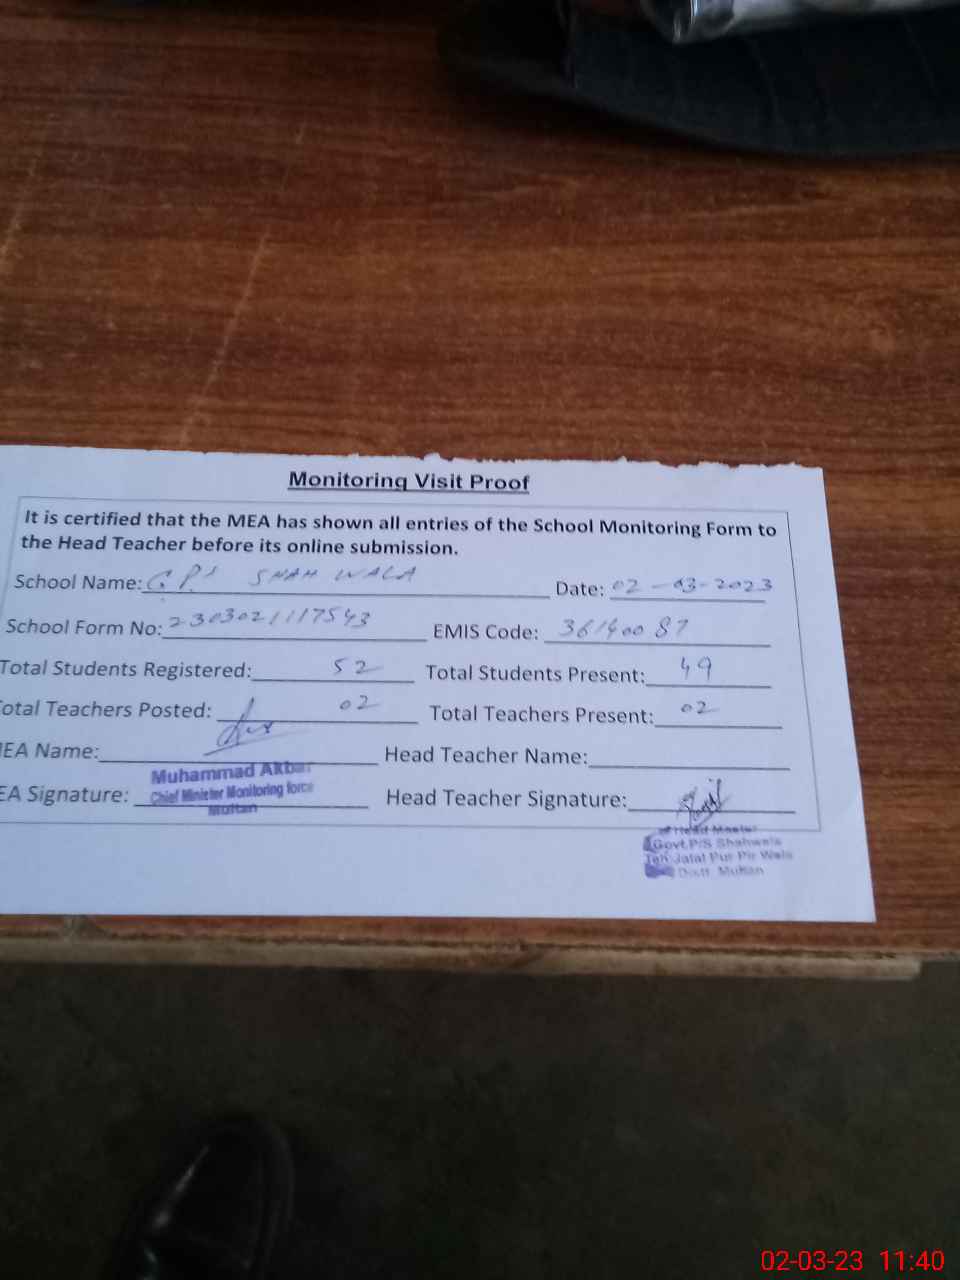 Monitoring Visit Proof
It is certified that the MEA has shown all entries of the School Monitoring Form to
the Head Teacher before its online submission.
School Name: G.P.S SHAH WALA Date: 02-03-2023
School Form No: 2303021117543 EMIS Code: 36140087
Total Students Registered: 52 Total Students Present: 49
Total Teachers Posted: 02 Total Teachers Present: 02
MEA Name: Head Teacher Name:
EA Signature: Head Teacher Signature:
Muhammad Akbar
Chief Minister Monitoring force
Multan
Head Master
Govt. P/S Shahwala
Teh. Jalal Pur Pir Wala
Distt. Multan
02-03-23 11:40